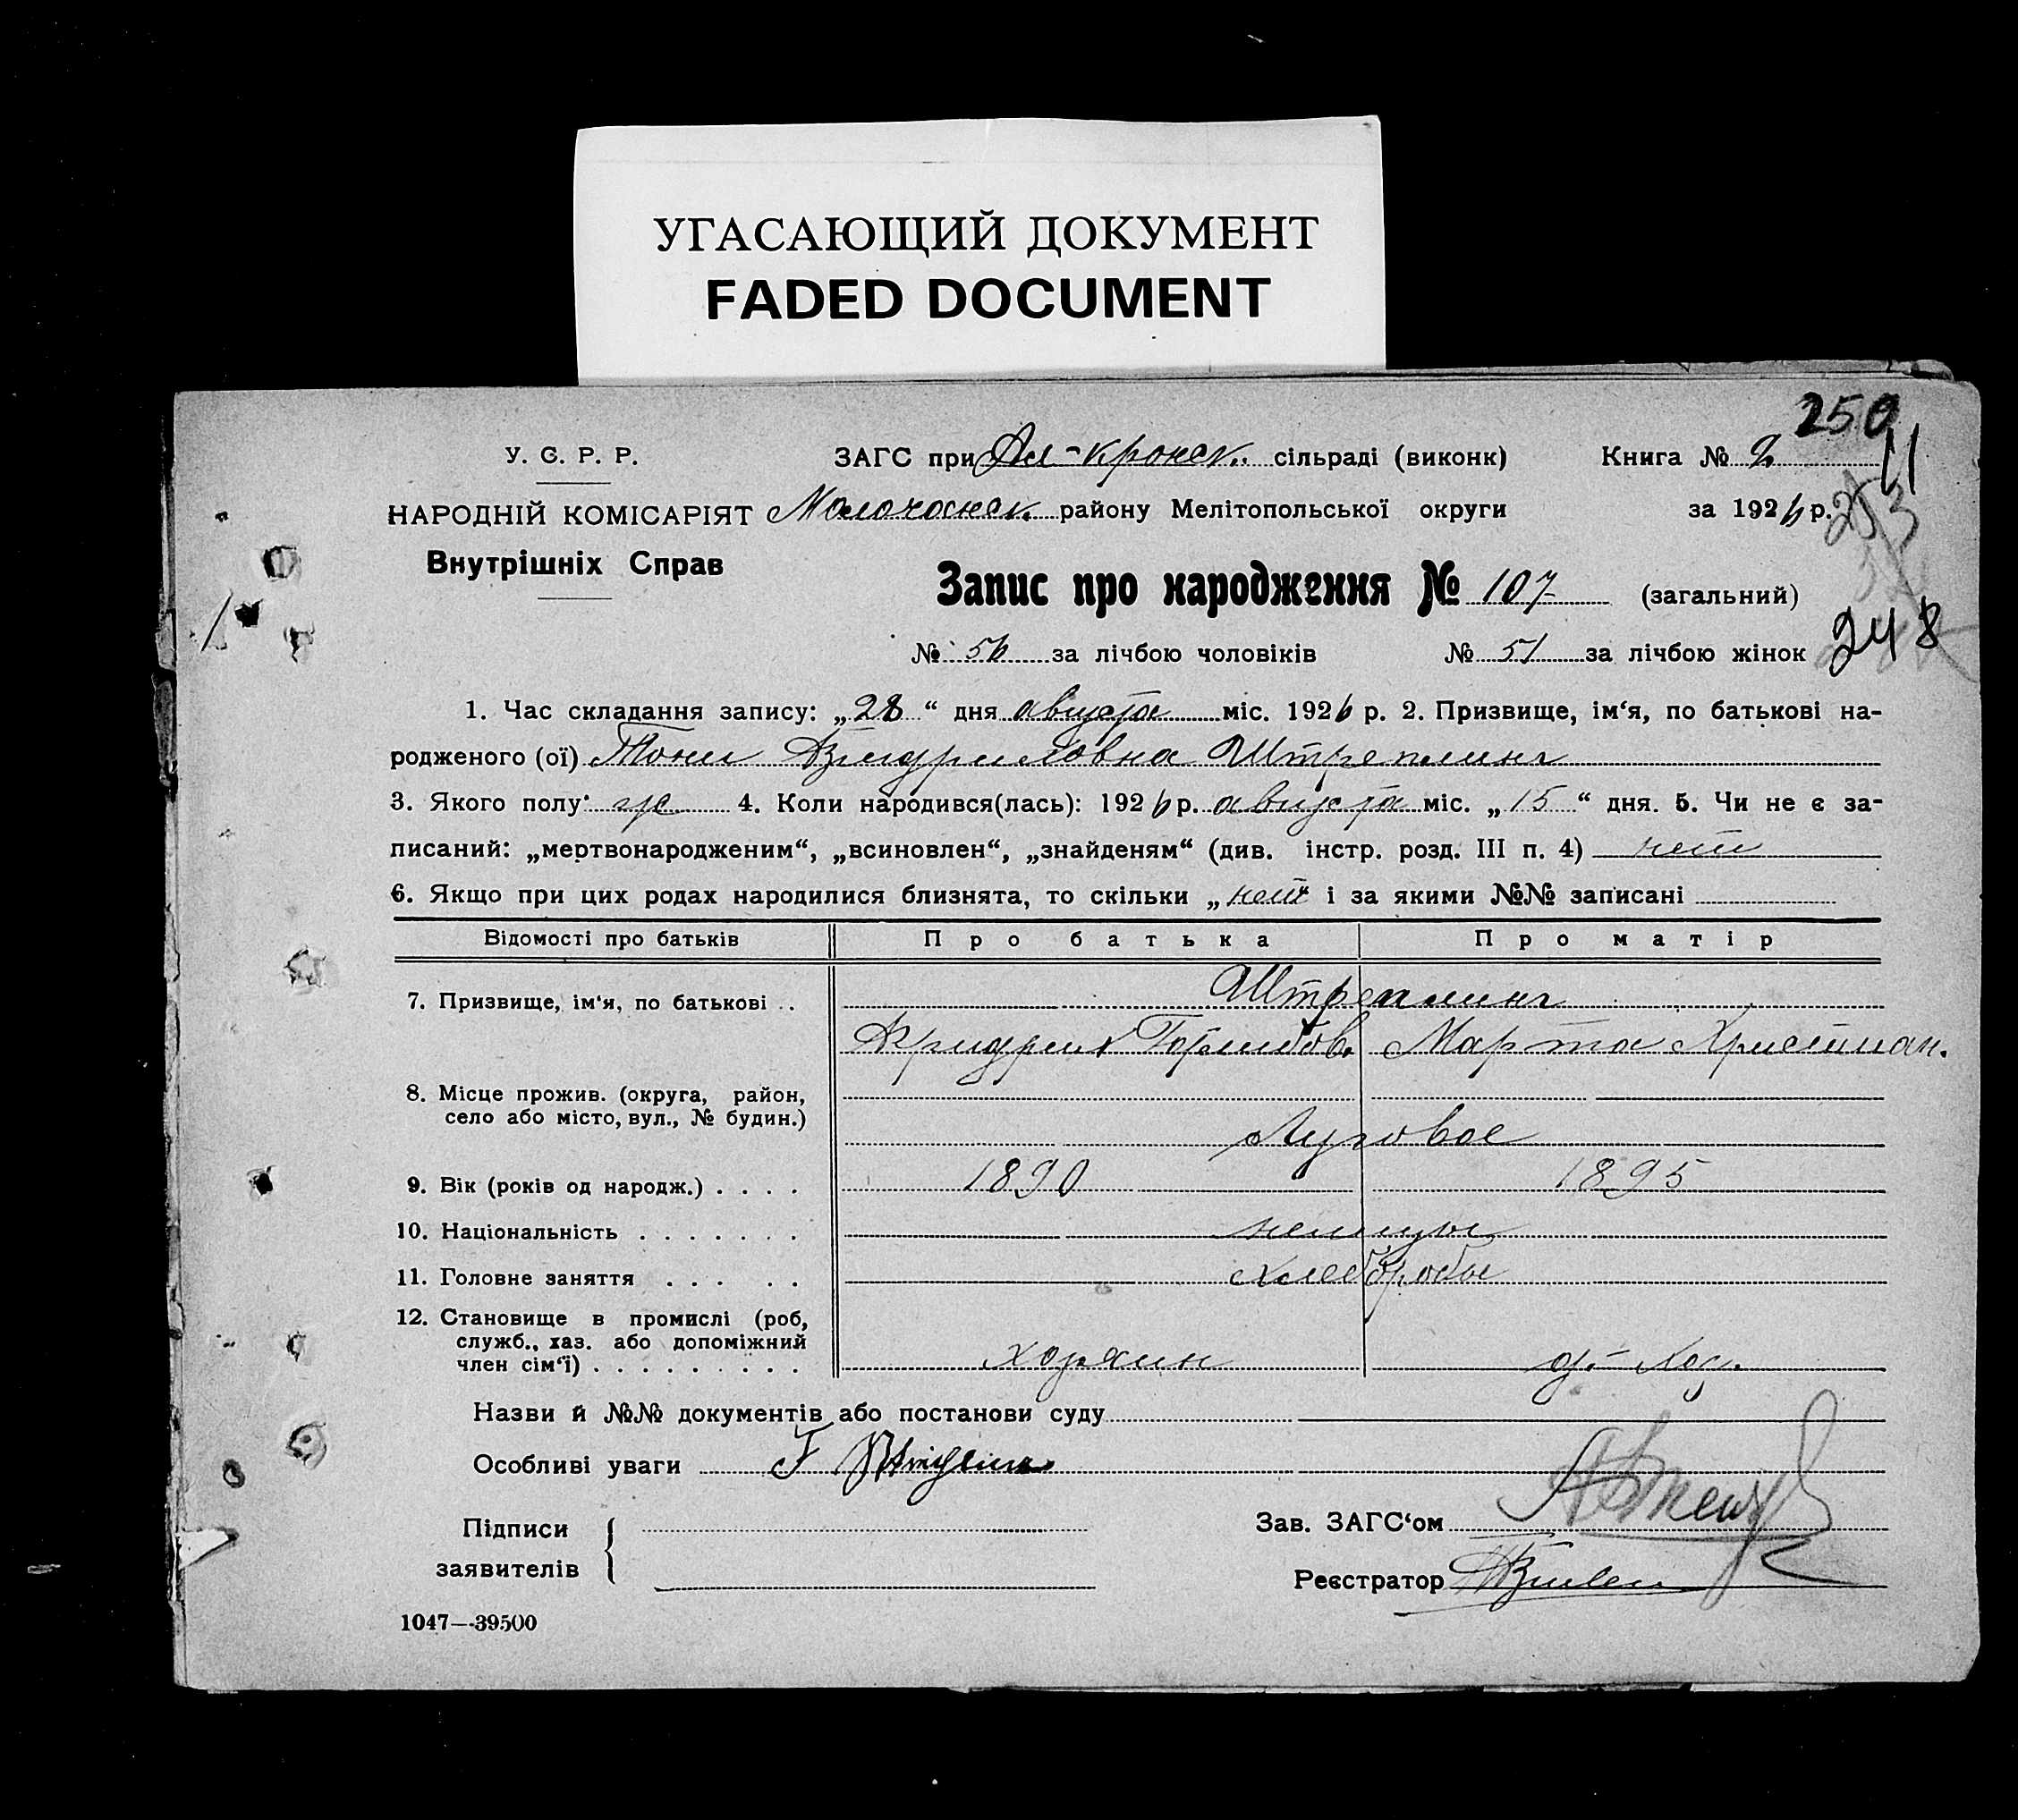 УГАСАЮЩИЙ ДОКУМЕНТ
FADED DOCUMENT
250
11
У. С. Р. Р.
ЗАГС при Ал-кронск. сільраді (виконк)
Книга № 2
НАРОДНІЙ КОМІСАРІЯТ
Молочанск. району Мелітопольської округи
за 1926 р.
253
Внутрішніх Справ
Запис про народження № 107 (загальний)
№ 56 за лічбою чоловіків № 51 за лічбою жінок
248
1. Час складання запису: „28“ дня августа міс. 1926 р. 2. Призвище, ім‘я, по батькові на-
родженого (ої) Тони Фридриховна Штреплинг
3. Якого полу ж 4. Коли народився(лась): 1926 р. августа міс. „15“ дня. 5. Чи не є за-
писаний: „мертвонародженим“, „всиновлен“, „знайденям“ (див. інстр. розд. III п. 4) нет
6. Якщо при цих родах народилися близнята, то скільки „нет і за якими №№ записані
Відомості про батьків
Про батька
Про матір
7. Призвище, ім‘я, по батькові ..
Штреплинг
Фридрих Готлибов.
Марта Християн.
8. Місце прожив. (округа, район,
село або місто, вул., № будин.)
Луговое
9. Вік (років од народж.) . . . .
1890
1895
10. Національність . . . . . . .
немцы
11. Головне заняття . . . . .
хлеборобы
12. Становище в промислі (роб,
служб., хаз. або допоміжний
член сім‘ї) . . . . . . . . .
хозяин
д.-хоз.
Назви й №№ документів або постанови суду
Особливі уваги
Підписи
заявителів
Зав. ЗАГС‘ом
Реєстратор
1047—39500